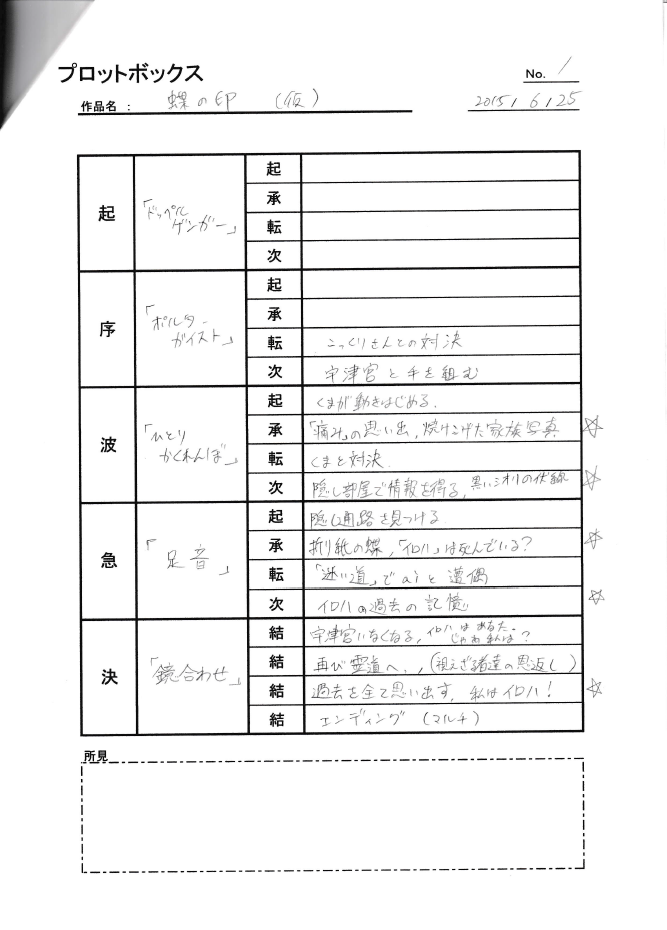 プロットボックス
No. 1
作品名 : 蝶の印 (仮)
2015/6/25
起
「ドッペル
ゲンガー」
起
承
転
次
序
「ポルター
ガイスト」
起
承
転 こっくりさんとの対決
次 宇津宮と手を組む
波
「ひとり
かくれんぼ」
起 くまが動きはじめる.
承 「痛み」の思い出, 焼けこげた家族写真 ☆
転 くまと対決.
次 隠し部屋で情報を得る, 黒いシオリの伏線 ☆
急
「足音」
起 隠し通路を見つける
承 折り紙の蝶,「イロハ」は死んでいる? ☆
転 「迷い道」でaiと遭遇
次 イロハの過去の記憶 ☆
決
「鏡合わせ」
結 宇津宮いなくなる, イロハはあなた.
じゃあ私は?
結 再び霊道へ, (視えざる者達の恩返し)
結 過去を全て思い出す, 私はイロハ! ☆
結 エンディング (マルチ)
所見